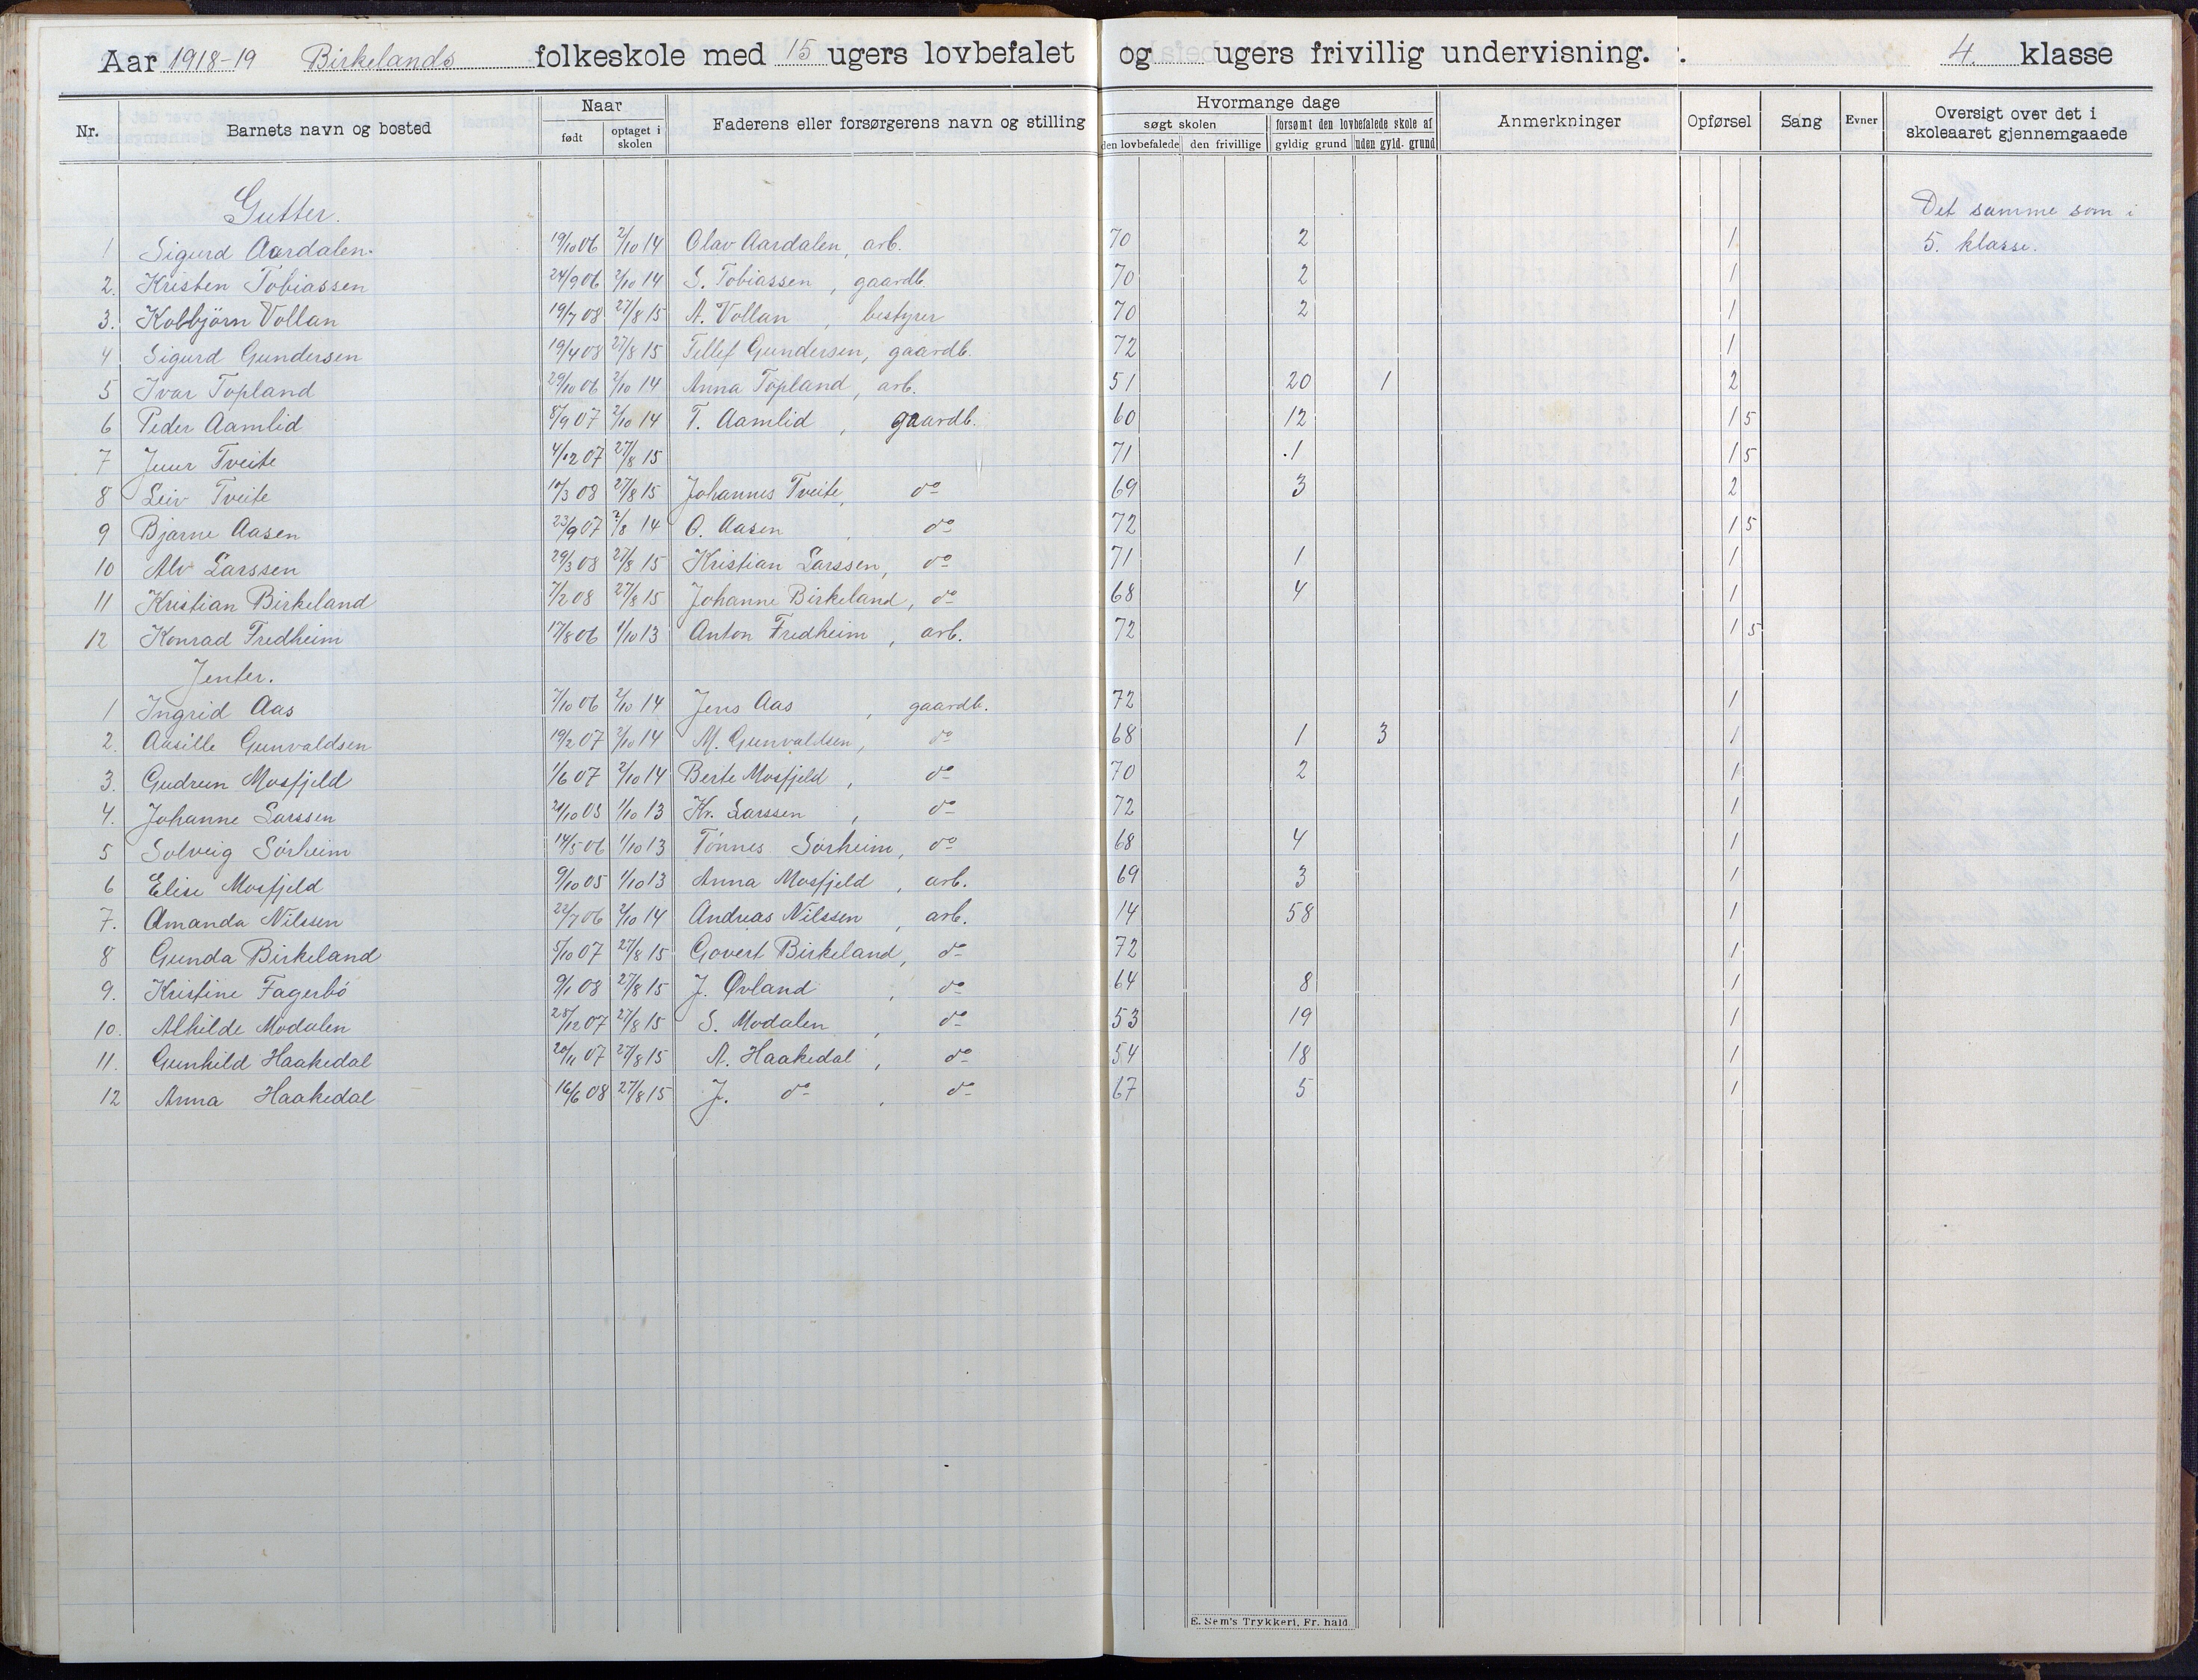 Aar 1918-19 Birkelands folkeskole med 15 ugers lovbefalet og ugers frivillig undervisning. 4. klasse
Nr. Barnets navn og bosted Naar født optaget i skolen Faderens eller forsørgerens navn og stilling Hvormange dage søgt skolen den lovbefalede den frivillige forsømt den lovbefalede skole af gyldig grund uden gyld. grund Anmerkninger Opførsel Sang Evner Oversigt over det i skoleaaret gjennemgaaede
Gutter. Det samme som i
1 Sigurd Aardalen. 19/10 06 2/10 14 Olav Aardalen, arb. 70 2 1 5. klasse.
2. Kristen Tobiassen 24/9 06 2/10 14 S. Tobiassen, gaardb. 70 2 1
3. Kolbjörn Vollan 19/7 08 27/8 15 A. Vollan, bestyrer 70 2 1
4 Sigurd Gundersen 19/4 08 27/8 15 Tellef Gundersen, gaardb. 72 1
5 Ivar Topland 29/10 06 2/10 14 Anna Topland, arb. 51 20 1 2
6 Peder Aamlid 8/9 07 2/10 14 T. Aamlid, gaardb. 60 12 1 5
7 Tveite 4/12 07 27/8 15 71 1 1 5
8 Leiv Tveite 17/3 08 27/8 15 Johannes Tveite, do 69 3 2
9 Bjarne Aasen 23/9 07 2/8 14 O. Aasen, do 72 1 5
10 Alv Larssen 29/3 08 27/8 15 Kristian Larssen, do 71 1 1
11 Kristian Birkeland 7/2 08 27/8 15 Johanne Birkeland, do 68 4 1
12 Konrad Fredheim 17/8 06 1/10 13 Anton Fredheim, arb. 72 1 5
Jenter.
1 Ingrid Aas 7/10 06 2/10 14 Jens Aas, gaardb. 72 1
2. Aasille Gunvaldsen 19/2 07 2/10 14 M. Gunvaldsen, do 68 1 3 1
3. Gudrun Mosfjeld 1/6 07 2/10 14 Berte Mosfjeld, do 70 2 1
4. Johanne Larssen 21/10 05 1/10 13 Kr. Larssen, do 72 1
5 Solveig Sörheim 14/5 06 1/10 13 Tönnes Sörheim, do 68 4 1
6 Elise Mosfjeld 9/10 05 1/10 13 Anna Mosfjeld, arb. 69 3 1
7. Amanda Nilssen 22/7 06 2/10 14 Andreas Nilssen, arb. 14 58 1
8 Gunda Birkeland 5/10 07 27/8 15 Govert Birkeland, do 72 1
9. Kristine Fagerbö 9/1 08 27/8 15 J. Øvland, do 64 8 1
10. Alhilde Modalen 28/12 07 27/8 15 S. Modalen, do 53 19 1
11. Gunhild Haakedal 20/11 07 27/8 15 A. Haakedal, do 54 18 1
12 Anna Haakedal 16/6 08 27/8 15 J. do, do 67 5 1
E. Sem's Trykkeri, Fr. hald